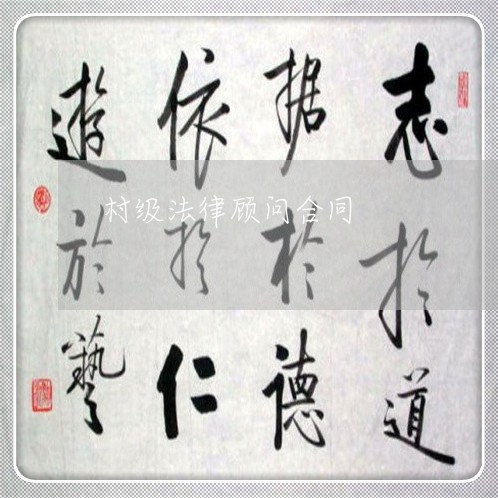 志於道
据於德
依於仁
遊於藝
村级法律顾问合同